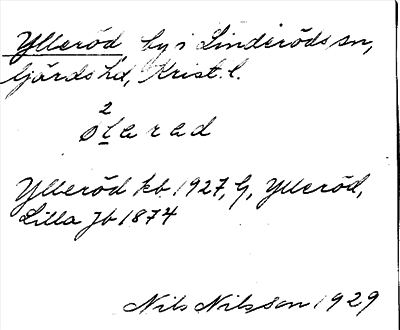 Ylleröd by i Linderöds sn,
Gärds hd, Krist. l.
2
ølarad
Ylleröd kb 1927, G, Ylleröd,
Lilla Jb 1874
Nils Nilsson 1929